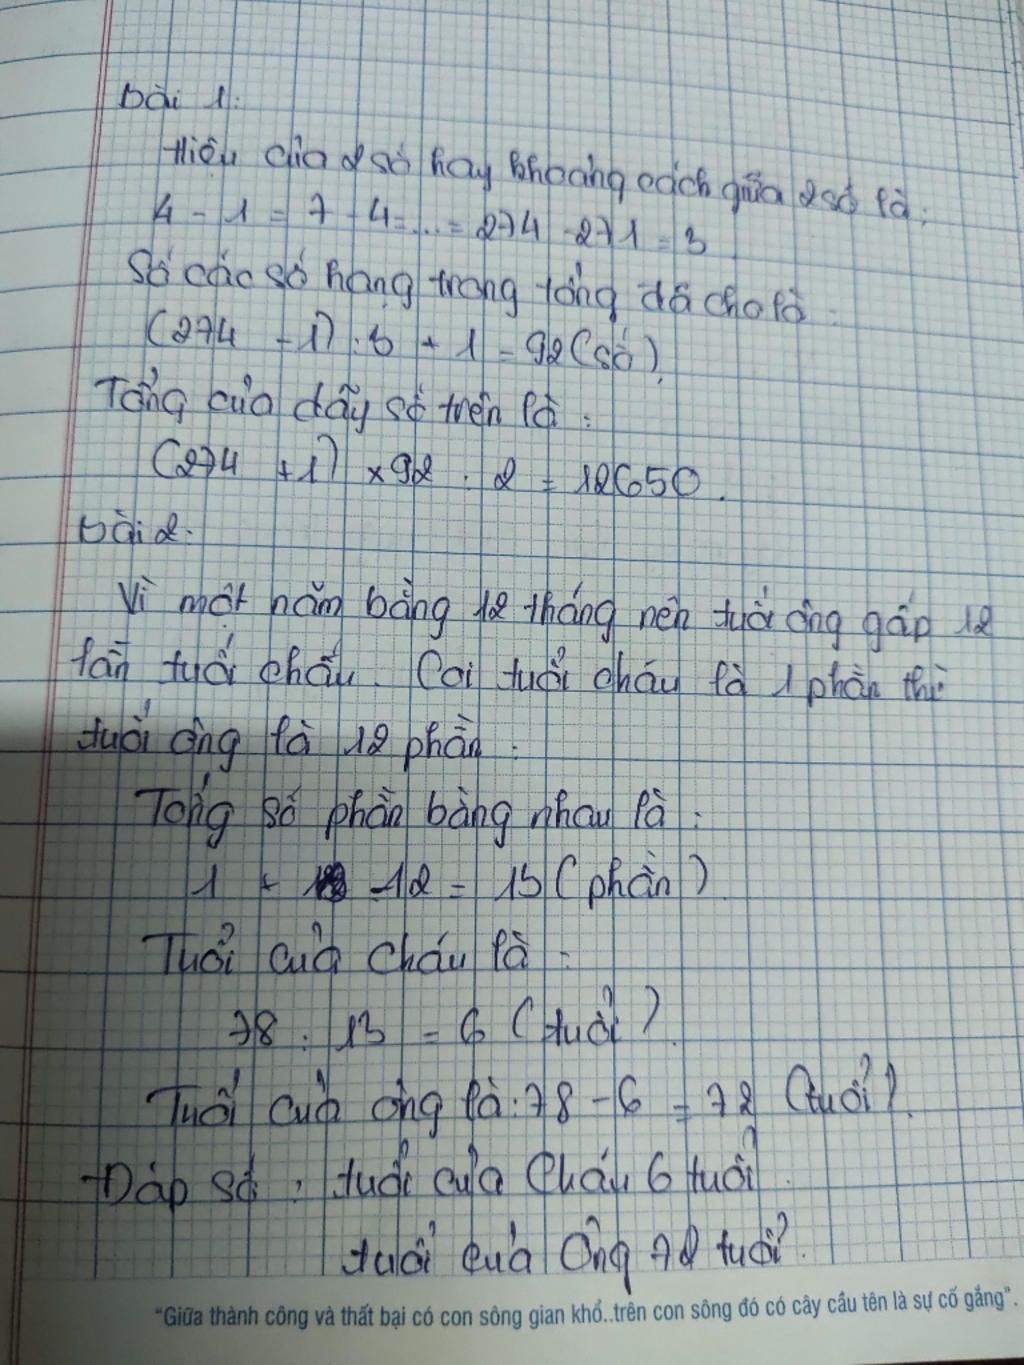 bài 1:
Hiệu của 2 số hay khoảng cách giữa 2 số là:
4 - 1 = 7 - 4 = ... = 274 - 271 = 3
Số các số hạng trong tổng đã cho là:
(274 - 1) : 3 + 1 = 92 (số).
Tổng của dãy số trên là:
(274 + 1) x 92 : 2 = 12650.
bài 2:
Vì một năm bằng 12 tháng nên tuổi ông gấp 12
lần tuổi cháu. Coi tuổi cháu là 1 phần thì
tuổi ông là 12 phần:
Tổng số phần bằng nhau là:
1 + 12 = 13 (phần)
Tuổi của cháu là:
78 : 13 = 6 (tuổi).
Tuổi của ông là: 78 - 6 = 72 (tuổi).
Đáp số: tuổi của Cháu 6 tuổi.
tuổi của Ông 72 tuổi.
"Giữa thành công và thất bại có con sông gian khổ..trên con sông đó có cây cầu tên là sự cố gắng".